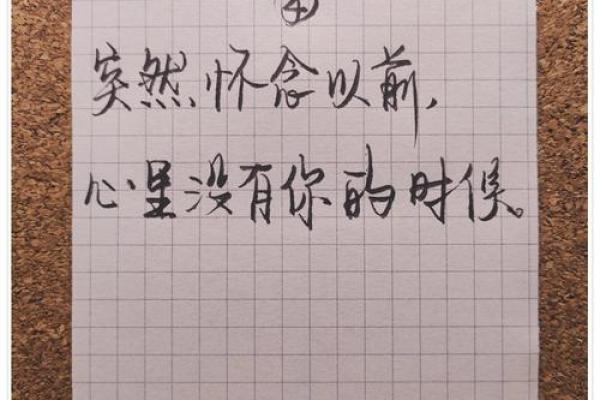 ④
突然怀念以前,
心里没有你的时候。